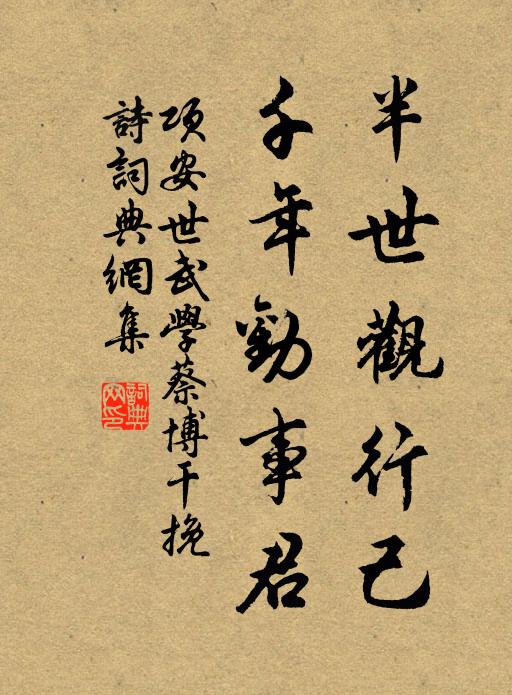 半世觀行己
千年勸事君
項安世武學蔡博干挽
詩詞典網集
詞典
网印